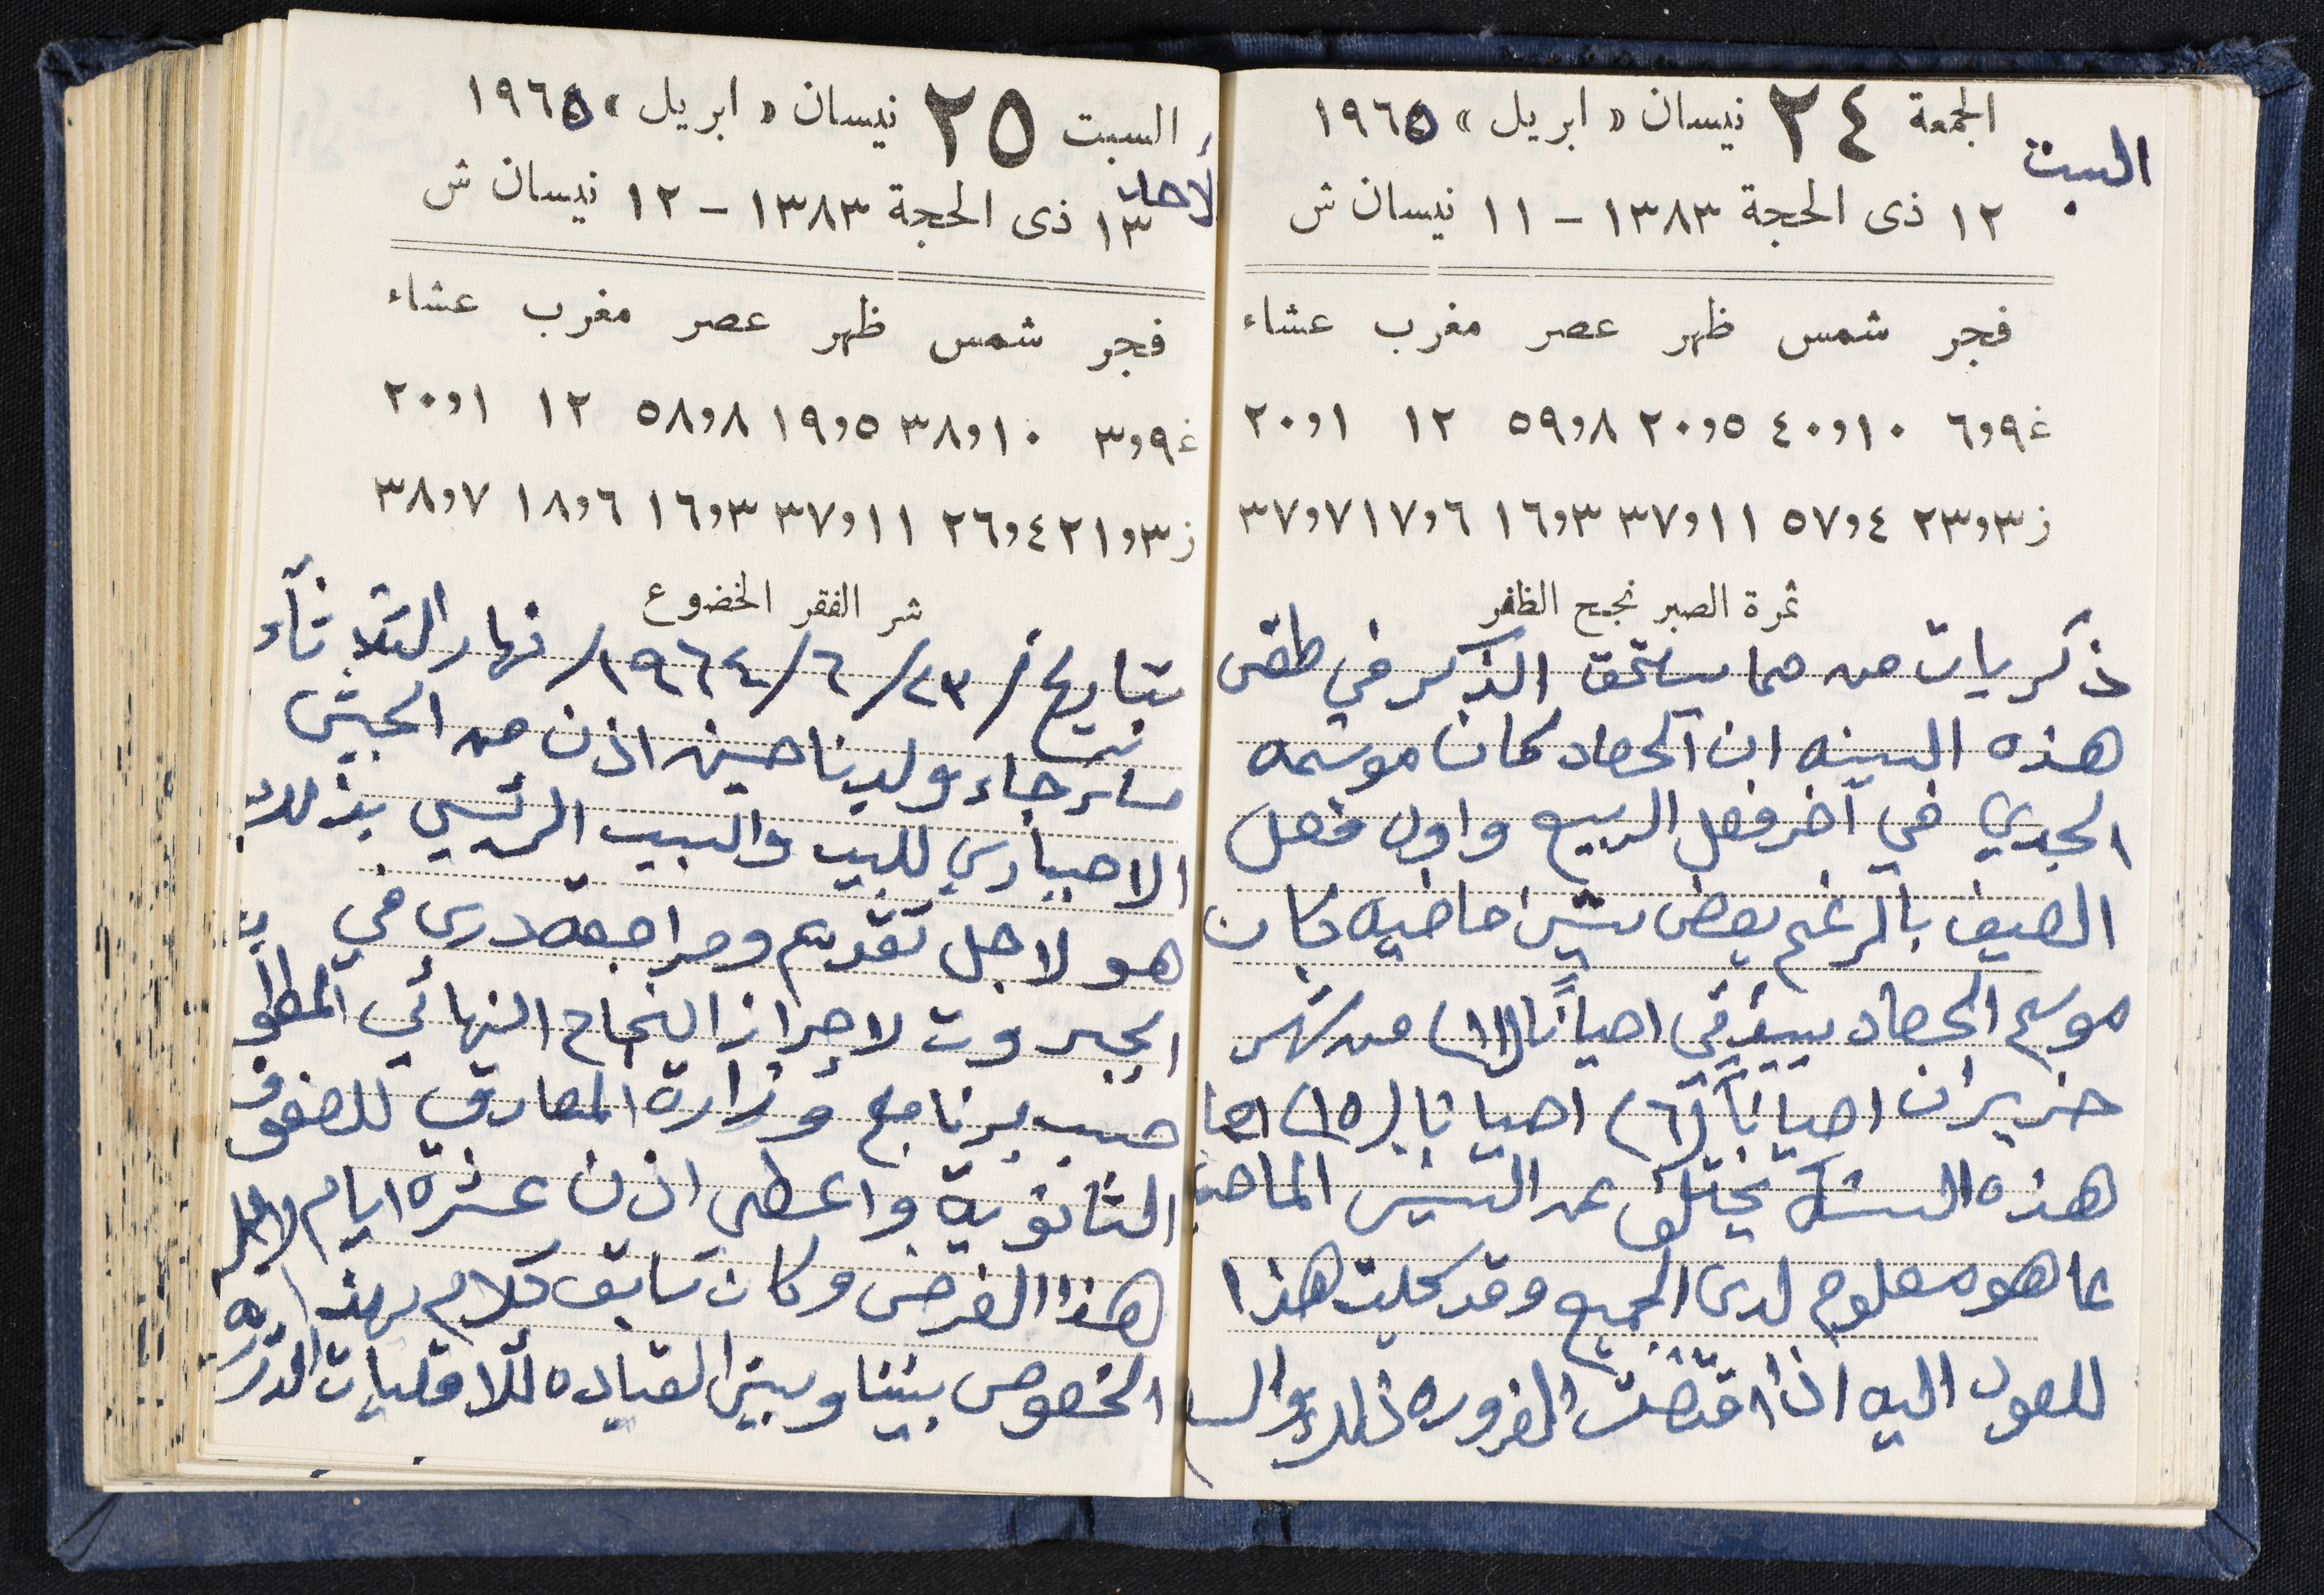 السبت
الجمعة ٢٤ نيسان « ابريل » ١٩٦٥
١٢ ذى الحجة ١٣٨٣ – ١١ نيسان ش
فجر شمس ظهر عصر مغرب عشاء
غ ٦٫٩ ٤٠٫١٠ ٢٠٫٥ ٥٩٫٨ ١٢ ٢٠٫١
ز ٢٣٫٣ ٥٧٫٤ ٣٧٫١١ ١٦٫٣ ١٧٫٦ ٣٧٫٧
ثمرة الصبر نجح الظفر
ذكريات من مما يستحق الذكر في طقس
هذه السنه ان الحصاد كان موسمه
الجدي في آخر فصل الربيع واول فصل
الصيف بالرغم بعض سنين ماضيه كان
موسم الحصاد يبتدي احياناً (١١) من شهر
حزيران احياناً (٦) احيانا (١٥) اما
هذه السنة تختلف عن السنين الماضية
عما هو معلوم لدى الجميع وقد سجلت هذا
للعود اليه اذا اقتضت الضروره ذلك
السبت ٢٥ نيسان « ابريل » ١٩٦٥
لأحد
١٣ ذى الحجة ١٣٨٣ – ١٢ نيسان ش
فجر شمس ظهر عصر مغرب عشاء
غ ٣٫٩ ٣٨٫١٠ ١٩٫٥ ٥٨٫٨ ١٢ ٢٠٫١
ز ٢١٫٣ ٢٦٫٤ ٣٧٫١١ ١٦٫٣ ١٨٫٦ ٣٨٫٧
شر الفقر الخضوع
بتاريخ / ٢٣ / ٦ / ١٩٦٤ / نهار الثلاثاء
جاء ولدينا حسين اذن من الجيش
الاجباري للبيت والسبب الرئيسي بذلك
هو لاجل تقديم ومراجعة درس في
لاحراز النجاح النهائي المطلوب
حسب برنامج وزارة المعارف للصفوف
الثانوية واعطي اذن عشرة ايام لاجل
هذا الغرض وكان سابق كلام بهذا
الخصوص بيننا وبين القياده للاقليات الدرزيه